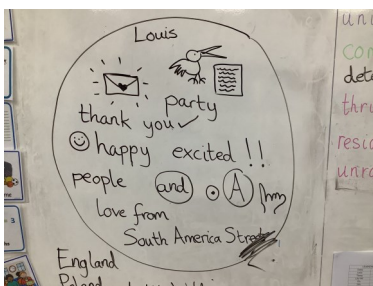 Louis
party
thank you ✓
happy excited !!
people and . A
love from
South America
England
Poland
uni
con
deta
thri
resid
unra
3